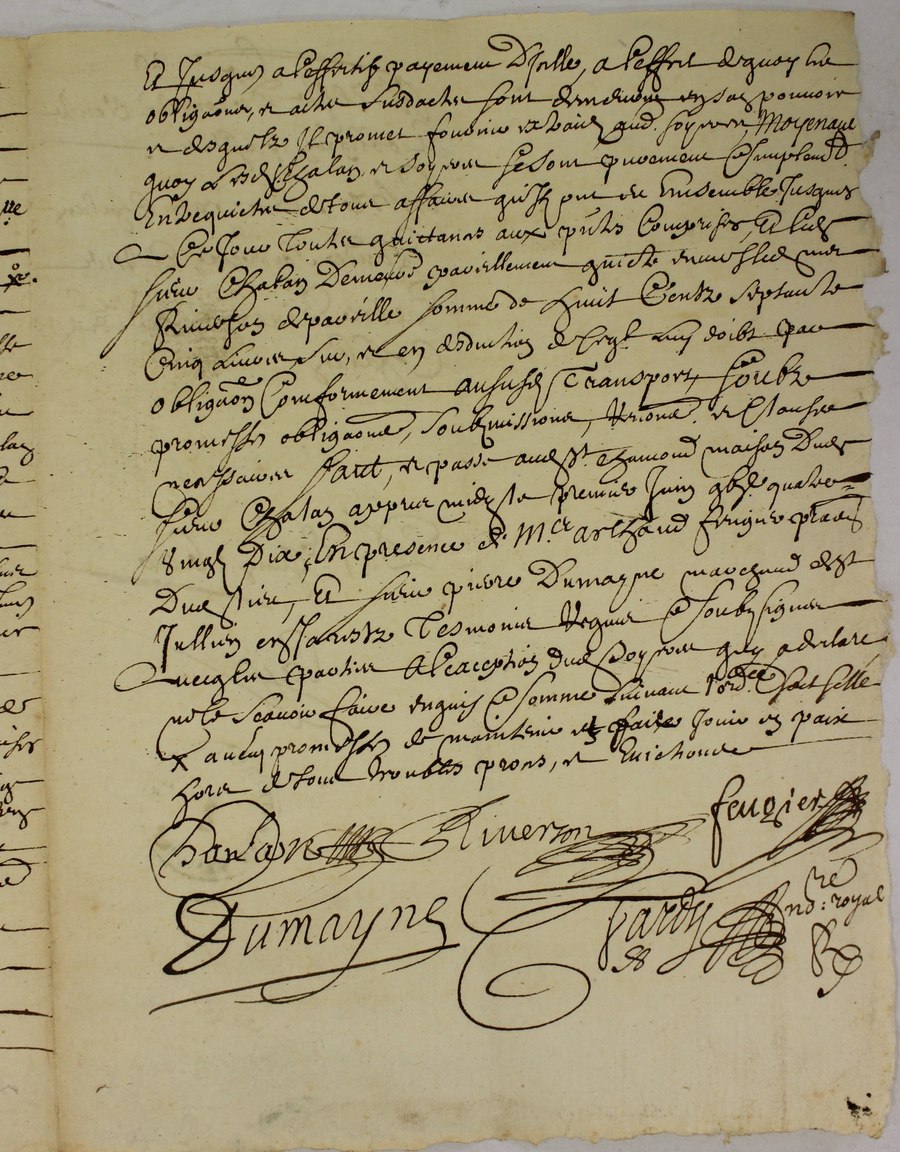 Et Jusques a l'effectif payement d'jcelle, a l'effect de quoy les
obligaõns, et actes susdactes sont demeurés en son pouvoir
et desquels Il promet fournir extraicts aud. soyeron, Moyenant
quoy Lesd. Chalan, et soyeron se sont purement & simplemt.
Entrequictes de tous affaires qu'ils ont eu Ensemble Jusques
Ce Jour toutes quictances aux pntes Comprises, Et led.
sieur Chalan Demeure pareillement quicte envers led. sieur
Riverson de pareille somme de huict Centz septante
Cinq Livres sur, et en deduction de ce qu'il luy doibt par
obligaõn Conformement aususd. Transport, soubz
promesses obligaons, soubmissions, renonc. et Clauses
necessaires faict, et passé aud. St. chamond maison dud.
sieur Chalan appres midy le premier Juin gbjc quatre
vingt Dix, En presence de Mre arthaud feugier
Dud. lieu, Et sieur pierre Dumayne marchand de St
Jullien en Jarestz Tesmoins requis & soubsignes
avecq les parties a l'exception dud. soyeron quy a declaré
ne le scavoir faire enquis & sommé suivant l'ordce Chat scellé
x avecq promesses de maintenir et faire Jouir en paix
hors de tous troubles procs, et evictions
Chalan Riverson feugier
Dumayne pardy no: royal